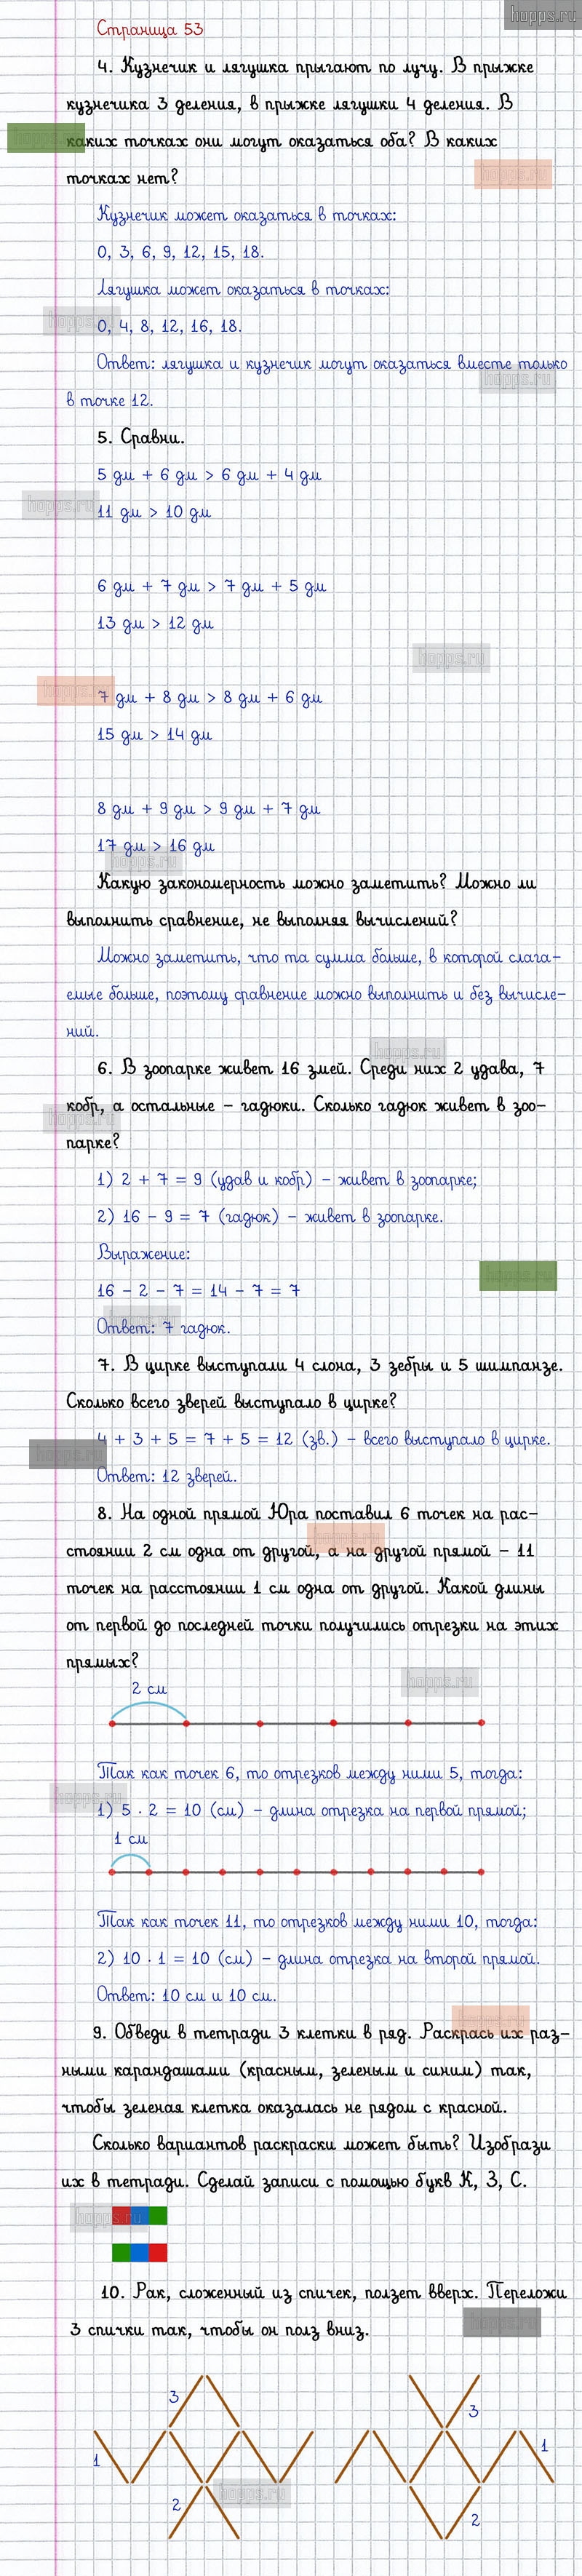 hopps.ru
Страница 53
4. Кузнечик и лягушка прыгают по лучу. В прыжке
кузнечика 3 деления, в прыжке лягушки 4 деления. В
каких точках они могут оказаться оба? В каких
точках нет?
hopps.ru
Кузнечик может оказаться в точках:
0, 3, 6, 9, 12, 15, 18.
Лягушка может оказаться в точках:
hopps.ru
0, 4, 8, 12, 16, 18.
Ответ: лягушка и кузнечик могут оказаться вместе только
hopps.ru
в точке 12.
5. Сравни.
5 дм + 6 дм > 6 дм + 4 дм
hopps.ru
11 дм > 10 дм
6 дм + 7 дм > 7 дм + 5 дм
13 дм > 12 дм
hopps.ru
7 дм + 8 дм > 8 дм + 6 дм
15 дм > 14 дм
8 дм + 9 дм > 9 дм + 7 дм
17 дм > 16 дм
hopps.ru
Какую закономерность можно заметить? Можно ли
выполнить сравнение, не выполняя вычислений?
Можно заметить, что та сумма больше, в которой слага-
емые больше, поэтому сравнение можно выполнить и без вычисле-
ний.
hopps.ru
6. В зоопарке живет 16 змей. Среди них 2 удава, 7
кобр, а остальные – гадюки. Сколько гадюк живет в зоо-
hopps.ru
парке?
1) 2 + 7 = 9 (удав и кобр) – живет в зоопарке;
2) 16 – 9 = 7 (гадюк) – живет в зоопарке.
Выражение:
hopps.ru
16 – 2 – 7 = 14 – 7 = 7
hopps.ru
Ответ: 7 гадюк.
7. В цирке выступали 4 слона, 3 зебры и 5 шимпанзе.
Сколько всего зверей выступало в цирке?
4 + 3 + 5 = 7 + 5 = 12 (зв.) – всего выступало в цирке.
hopps.ru
Ответ: 12 зверей.
8. На одной прямой Юра поставил 6 точек на рас-
hopps.ru
стоянии 2 см одна от другой, а на другой прямой – 11
точек на расстоянии 1 см одна от другой. Какой длины
от первой до последней точки получились отрезки на этих
прямых?
hopps.ru
2 см
Так как точек 6, то отрезков между ними 5, тогда:
hopps.ru
1) 5 · 2 = 10 (см) – длина отрезка на первой прямой;
1 см
Так как точек 11, то отрезков между ними 10, тогда:
2) 10 · 1 = 10 (см) – длина отрезка на второй прямой.
Ответ: 10 см и 10 см.
hopps.ru
9. Обведи в тетради 3 клетки в ряд. Раскрась их раз-
ными карандашами (красным, зеленым и синим) так,
чтобы зеленая клетка оказалась не рядом с красной.
Сколько вариантов раскраски может быть? Изобрази
их в тетради. Сделай записи с помощью букв К, З, С.
hopps.ru
10. Рак, сложенный из спичек, ползет вверх. Переложи
hopps.ru
3 спички так, чтобы он полз вниз.
3
3
1
1
hopps.ru
2
2